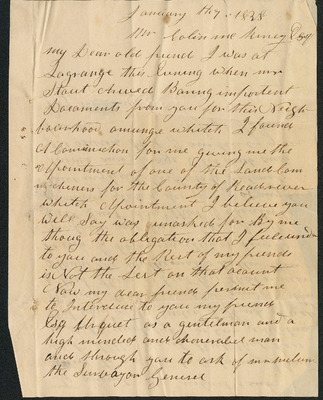 January the 7. 1838
Mr Colin mc Kiney Esqr
my Dear old friend I was at
Lagrange this Evning when mr
Stout arived Baring important
Documents from you for this Neigh
bourhood amungs whitch I found
A Comunication for me giveing me the
Apointment of one of the Land Com
ichners for the County of Readriver
whitch Apointment I believe you
will Say was unasked for By me
thoug the obligation that I feel und
to you and the Rest of my friends
is Not the Lest on that acount
Now my dear friend permit me
to Interduce to you my friend
Esq Urquet as a gentelman and a
high minded and Honerabel man
and through you to ask of mr
the Survayor General